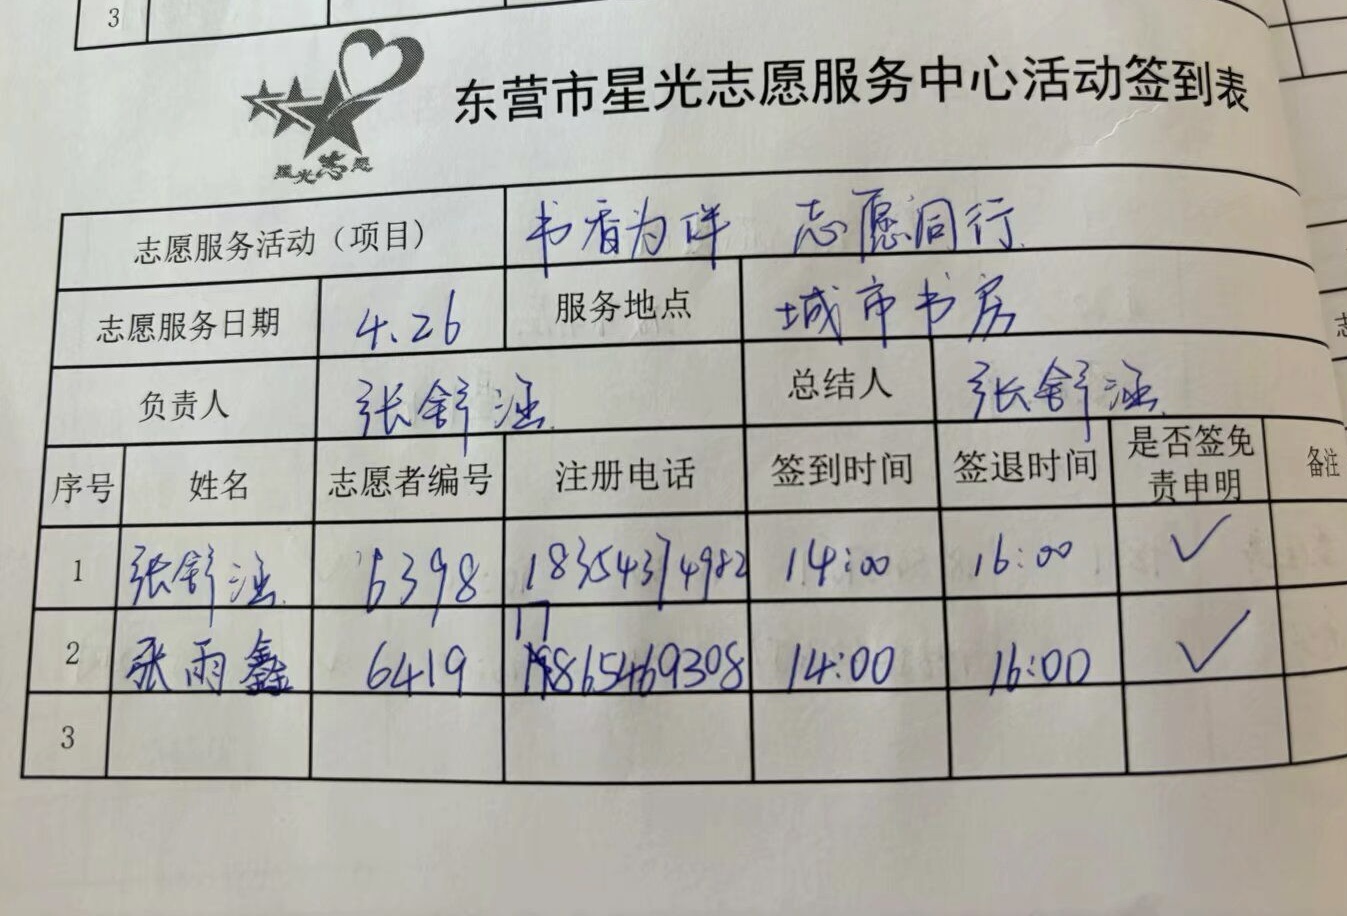 3
星光志愿
东营市星光志愿服务中心活动签到表
志愿服务活动（项目） 书香为伴 志愿同行
志愿服务日期 4.26 服务地点 城市书房
负责人 张舒涵 总结人 张舒涵
序号 姓名 志愿者编号 注册电话 签到时间 签退时间 是否签免责申明 备注
1 张舒涵 6398 18354374982 14:00 16:00 ✓
2 张雨鑫 6419 17865469308 14:00 16:00 ✓
3